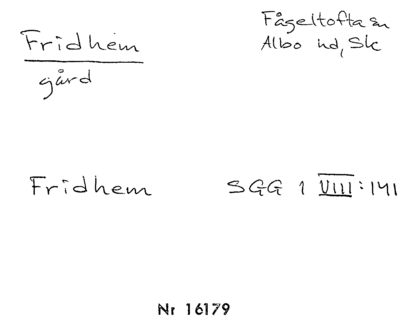 Fridhem
gård
Fågeltofta sn
Albo hd, Sk
Fridhem SGG 1 VIII:141
Nr 16179